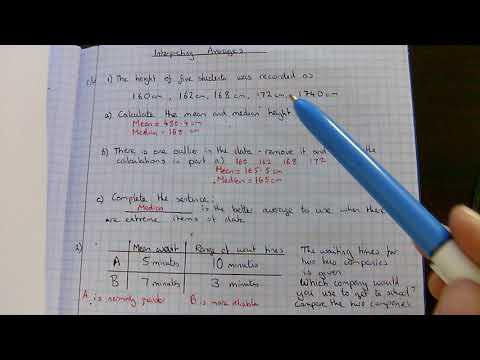 Interpreting Averages
c/w 1) The height of five students was recorded as
160cm, 162cm, 168cm, 172cm, 1740cm
a) Calculate the mean and median height
Mean = 480.4 cm
Median = 168 cm
b) There is one outlier in the data - remove it and the
calculations in part a) 160 162 168 172
Mean = 165.5 cm
Median = 165cm
c) Complete the sentence:
Median is the better average to use when there
are extreme items of data.
2)
Mean wait Range of wait times
A 5 minutes 10 minutes
B 7 minutes 3 minutes
A is normally quicker B is more reliable
The waiting times for
two bus companies
is given
Which company would
you use to get to school?
Compare the two companies